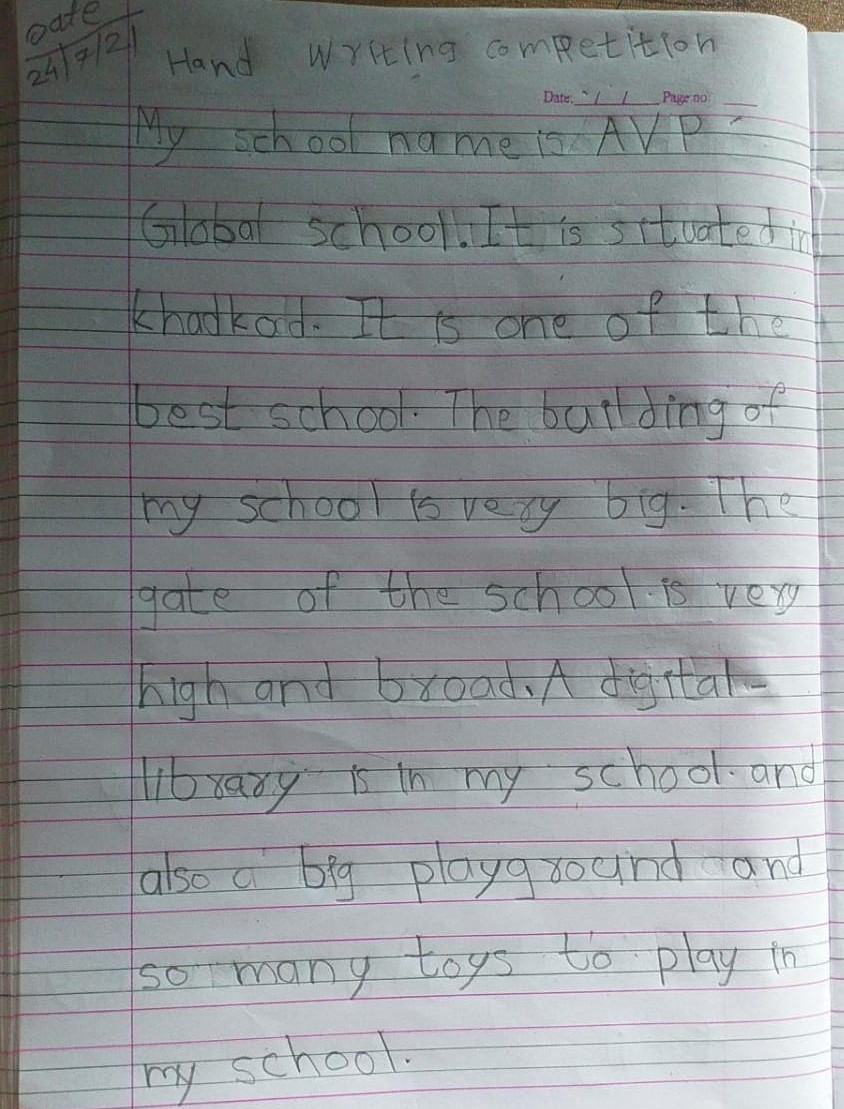 Date
24/7/21
Hand Writing competition
Date: / / Page no:
My school name is AVP
Global school. It is situated in
khadkad. It is one of the
best school. The building of
my school is very big. The
gate of the school is very
high and broad. A digital-
library is in my school. and
also a big playground and
so many toys to play in
my school.